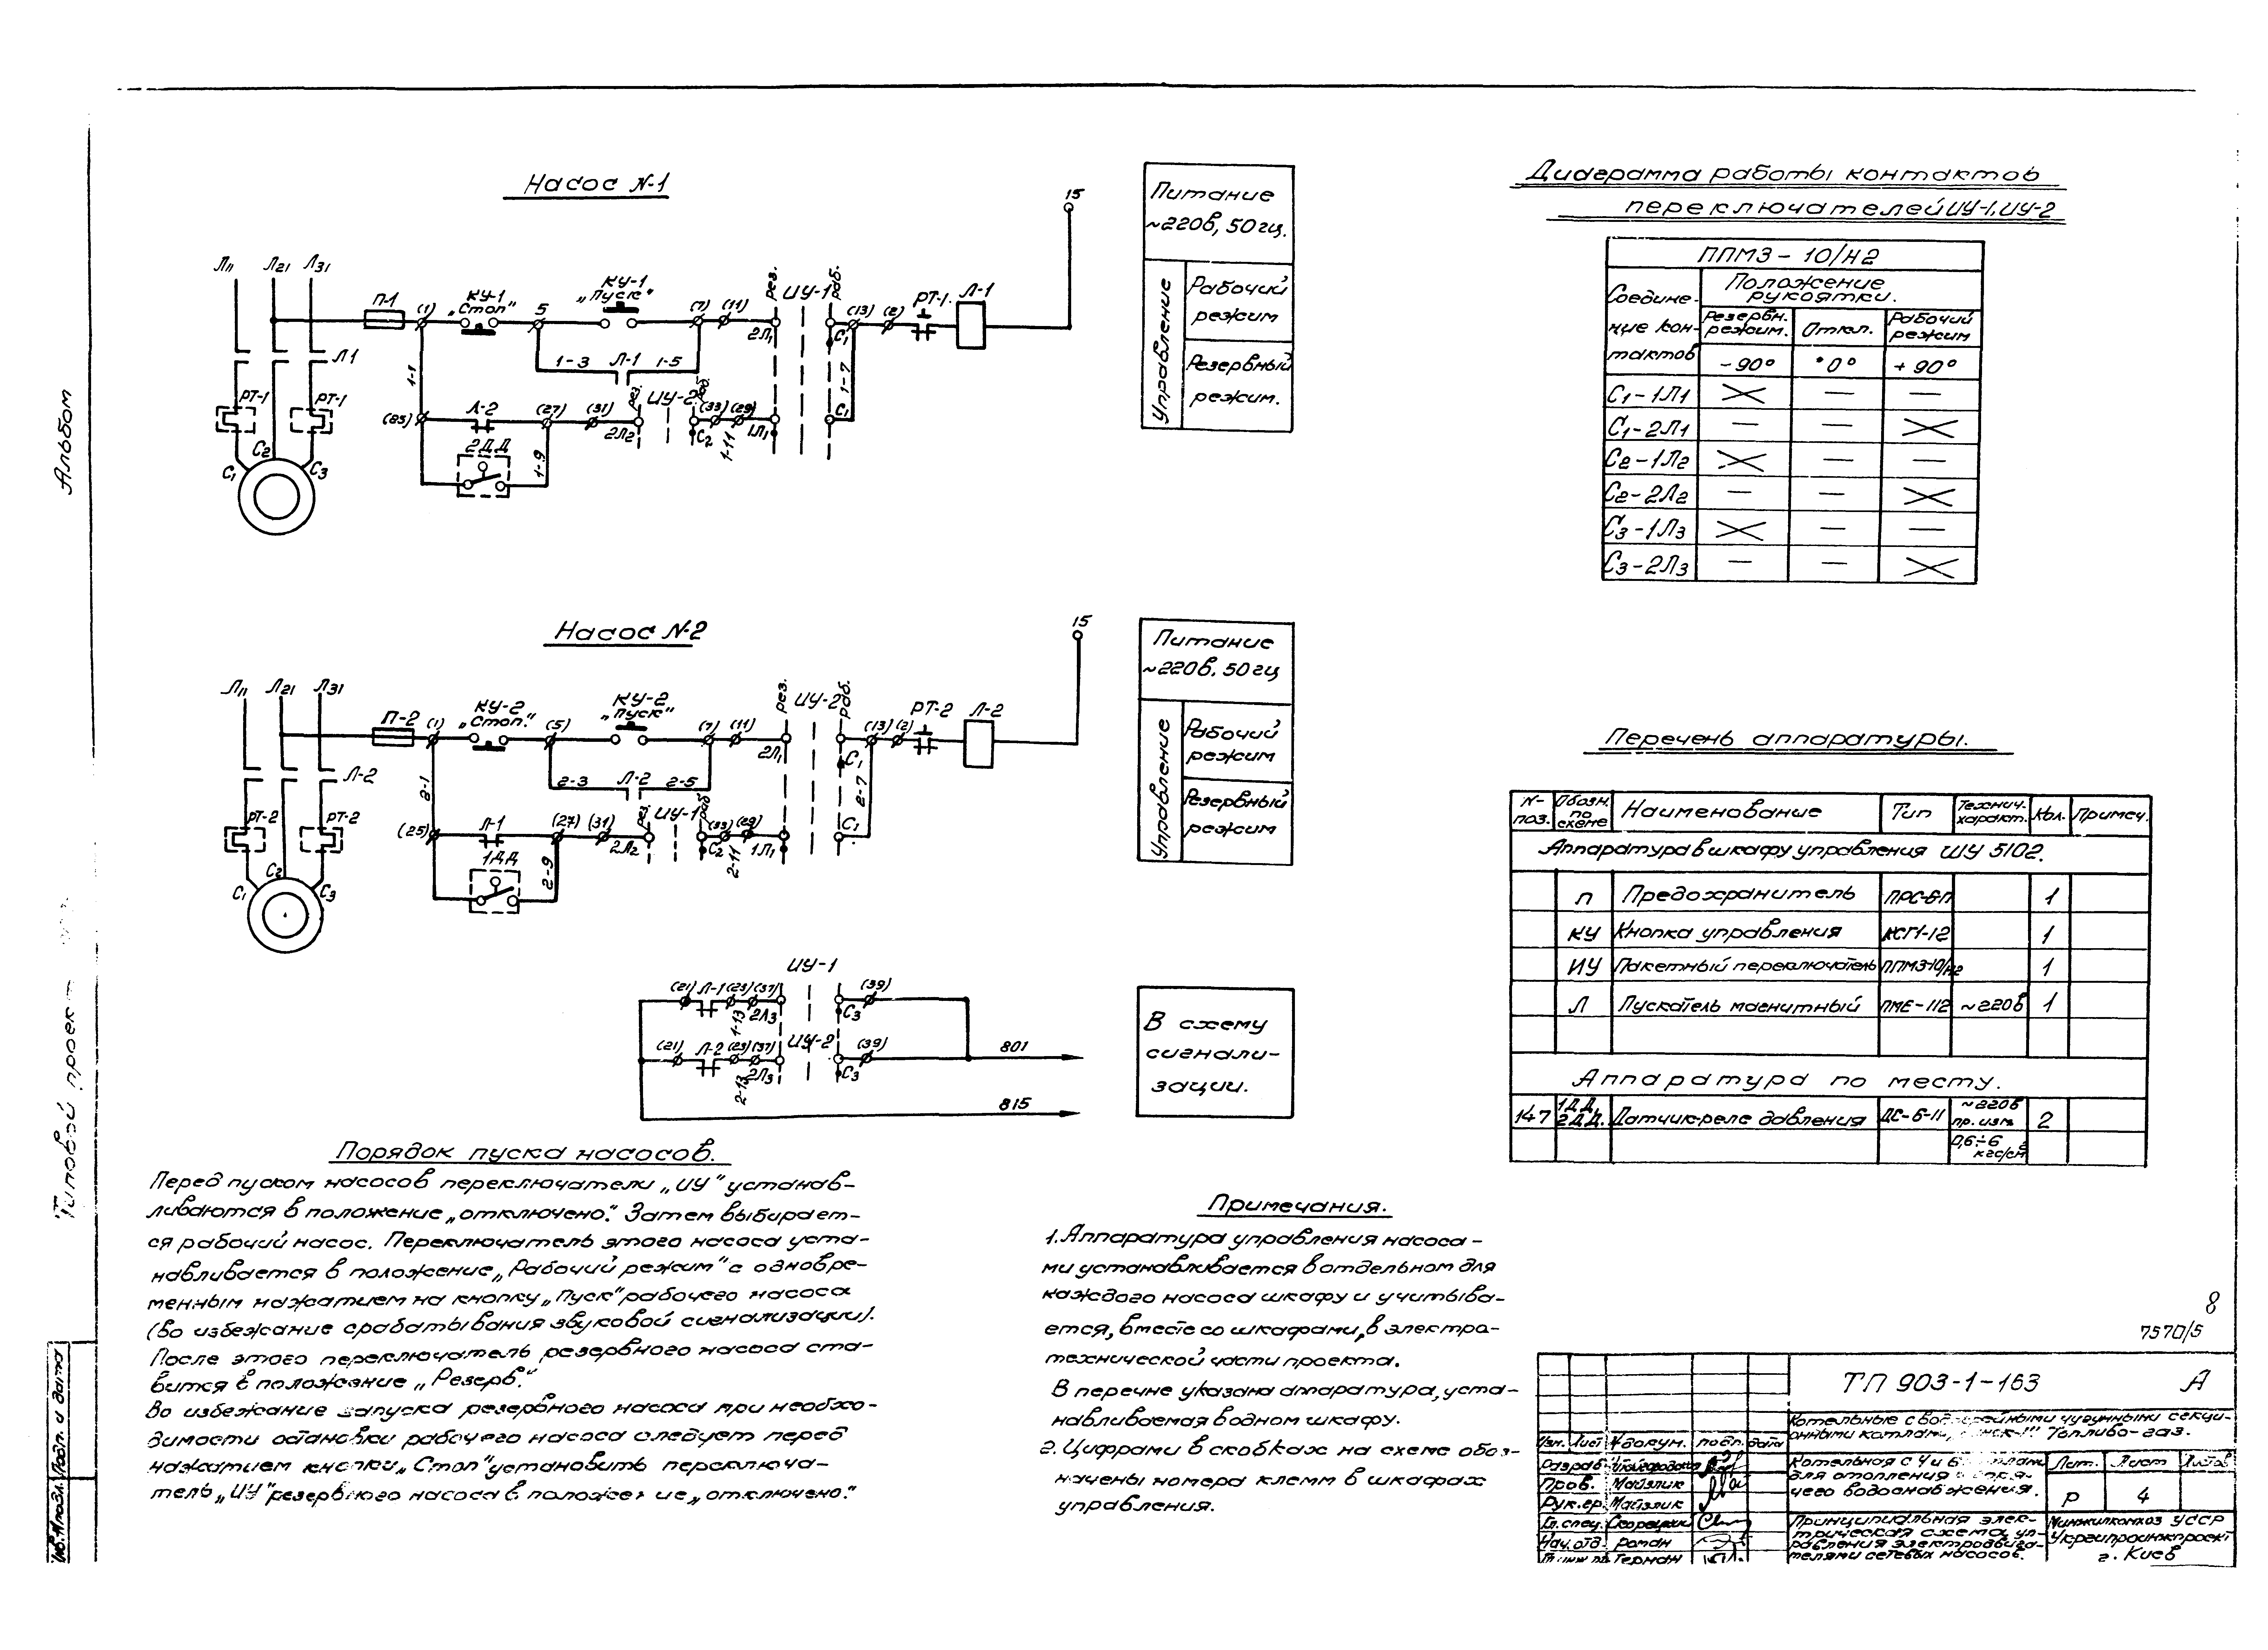 Альбом
Типовой проект
Инв.№подл. Подп. и дата
Насос №1
Л11 Л21 Л31
П-1 (1) КУ-1 „Стоп" 5 КУ-1 „Пуск" (7) (11) рез. ИУ-1 раб. (13) (2) РТ-1 Л-1 15
2Л1 С1
Л1
1-1 1-3 Л-1 1-5 1-7
РТ-1 РТ-1
(85) Л-2 (27) (31) рез. ИУ-2 раб. (33) (29) С1
2Л2 С2 1-11 1Л1
2ДД 1-9
С1 С2 С3
Питание
~220в, 50гц.
Управление
Рабочий
режим
Резервный
режим.
Насос №2
Л11 Л21 Л31
П-2 (1) КУ-2 „Стоп." (5) КУ-2 „Пуск" (7) (11) рез. ИУ-2 раб. (13) (2) РТ-2 Л-2 15
2Л1 С1
Л-2
2-1 2-3 Л-2 2-5 2-7
РТ-2 РТ-2
(25) Л-1 (27) (31) рез. ИУ-1 раб (33) (29) С1
2Л2 С2 2-11 1Л1
1ДД 2-9
С1 С2 С3
Питание
~220в. 50гц
Управление
Рабочий
режим
Резервный
режим
ИУ-1
(21) Л-1 (23) (37) (39)
1-13 2Л3 С3
ИУ-2
(21) Л-2 (23) (37) (39)
2-13 2Л3 С3
801
815
В схему
сигнали-
зации.
Порядок пуска насосов.
Перед пуском насосов переключатели „ИУ" устанав-
ливаются в положение „отключено." Затем выбирает-
ся рабочий насос. Переключатель этого насоса уста-
навливается в положение „Рабочий режим" с одновре-
менным нажатием на кнопку „Пуск" рабочего насоса
(во избежание срабатывания звуковой сигнализации).
После этого переключатель резервного насоса ста-
вится в положение „Резерв."
Во избежание запуска резервного насоса при необхо-
димости остановки рабочего насоса следует перед
нажатием кнопки „Стоп" установить переключа-
тель „ИУ" резервного насоса в положение „отключено."
Примечания.
1. Аппаратура управления насоса-
ми устанавливается в отдельном для
каждого насоса шкафу и учитыва-
ется, вместе со шкафами, в электро-
технической части проекта.
В перечне указана аппаратура, уста-
навливаемая в одном шкафу.
2. Цифрами в скобках на схеме обоз-
начены номера клемм в шкафах
управления.
Диаграмма работы контактов
переключателей ИУ-1, ИУ-2
ППМ3-10/Н2
Соедине-
ние кон-
тактов
Положение
рукоятки.
Резервн.
режим. Откл. Рабочий
режим
-90° 0° +90°
С1-1Л1 — —
С1-2Л1 — —
С2-1Л2 — —
С2-2Л2 — —
С3-1Л3 — —
С3-2Л3 — —
Перечень аппаратуры.
№ поз. Обозн. по схеме Наименование Тип Технич. характ. Кол. Примеч.
Аппаратура в шкафу управления ШУ 5102.
П Предохранитель ПРС-6П 1
КУ Кнопка управления КСГ1-12 1
ИУ Пакетный переключатель ППМ3-10/Н2 1
Л Пускатель магнитный ПМЕ-112 ~220в 1
Аппаратура по месту.
147 1ДД, 2ДД. Датчик-реле давления ДС-Б-11 ~220в 2
пр. изм.
0,6÷6
кгс/см2
8
7570/5
ТП 903-1-163 А
Котельные с водогрейными чугунными секци-
онными котлами, Топливо-газ.
Изм. Лист №докум. подп. дата
Разраб.
Пров. Майзлик
Рук.гр. Майзлик
Гл.спец.
Нач.отд. Ротан
Герман
Котельная с 4 и 6 котлами
для отопления и горя-
чего водоснабжения.
Лит. Лист Листов
Р 4
Принципиальная элек-
трическая схема уп-
равления электродвига-
телями сетевых насосов.
Минжилкомхоз УССР
Укргипроинжпроект
г. Киев